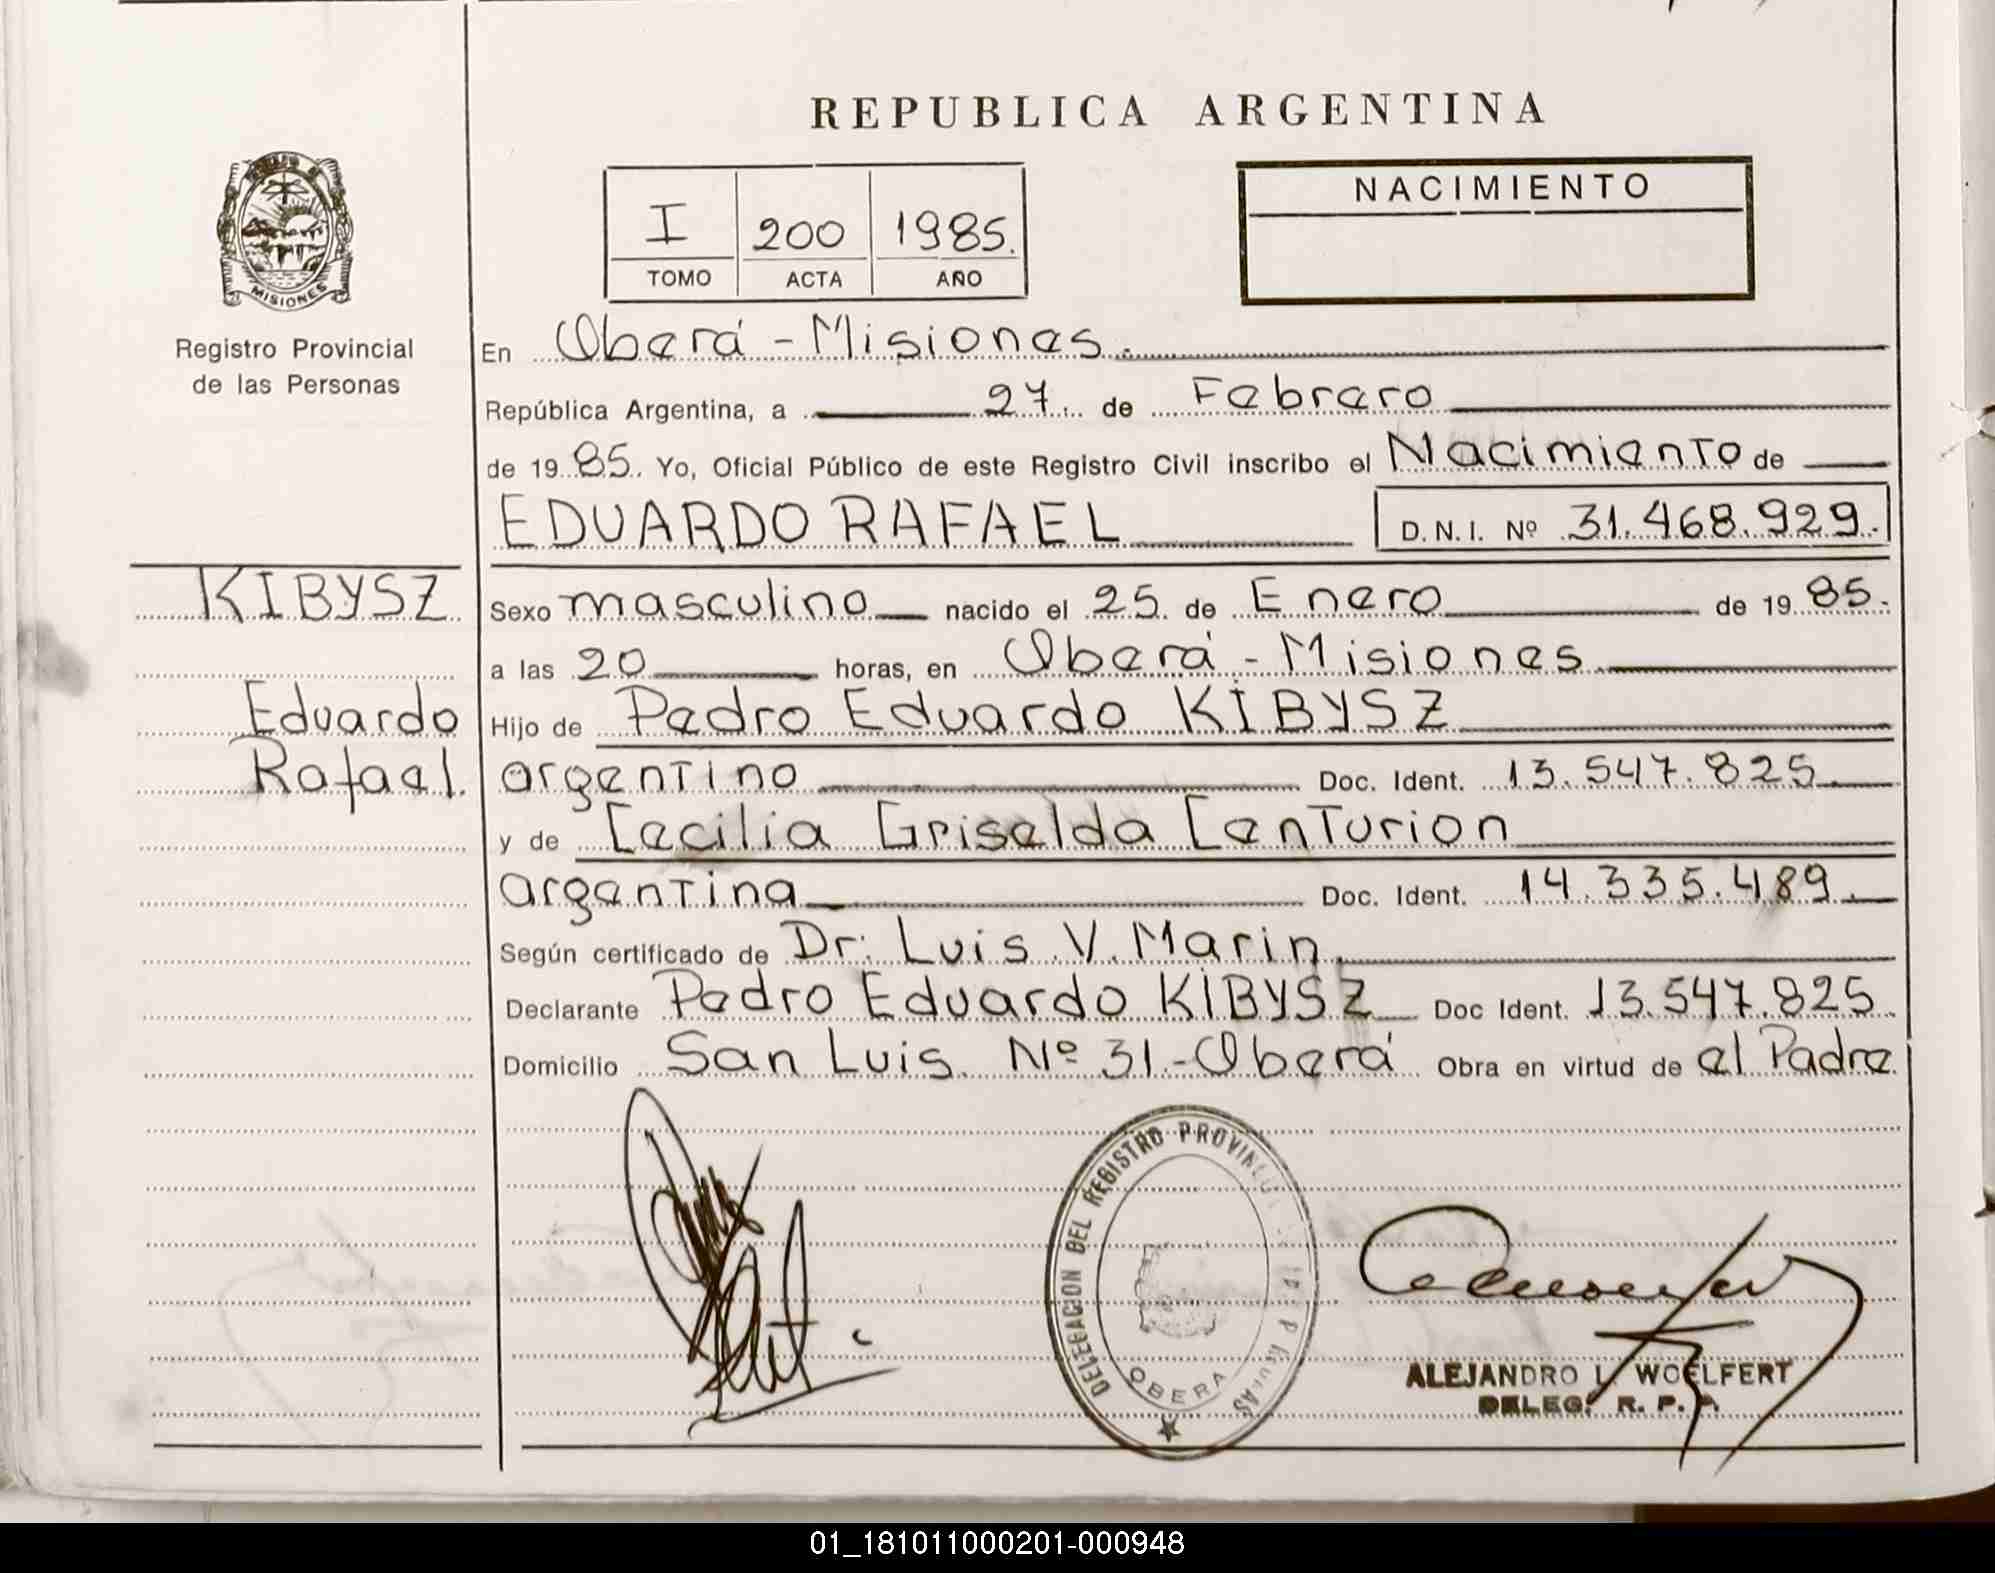 REPUBLICA ARGENTINA
MISIONES
Registro Provincial
de las Personas
I 200 1985.
TOMO ACTA AÑO
NACIMIENTO
En Oberá - Misiones.
República Argentina, a 27 de Febrero
de 1985. Yo, Oficial Público de este Registro Civil inscribo el Nacimiento de
EDUARDO RAFAEL D.N.I. Nº 31.468.929.
KIBYSZ
Sexo masculino nacido el 25 de Enero de 1985.
a las 20 horas, en Oberá - Misiones
Eduardo
Rafael.
Hijo de Pedro Eduardo KIBYSZ
argentino Doc. Ident. 13.547.825.
y de Cecilia Griselda Centurion
argentina Doc. Ident. 14.335.489.
Según certificado de Dr: Luis V. Marin.
Declarante Pedro Eduardo KIBYSZ Doc Ident. 13.547.825.
Domicilio San Luis Nº 31.-Oberá Obra en virtud de el Padre
DELEGACION DEL REGISTRO PROVINCIAL
OBERA
ALEJANDRO L. WOELFERT
DELEG. R. P. P.
01_181011000201-000948